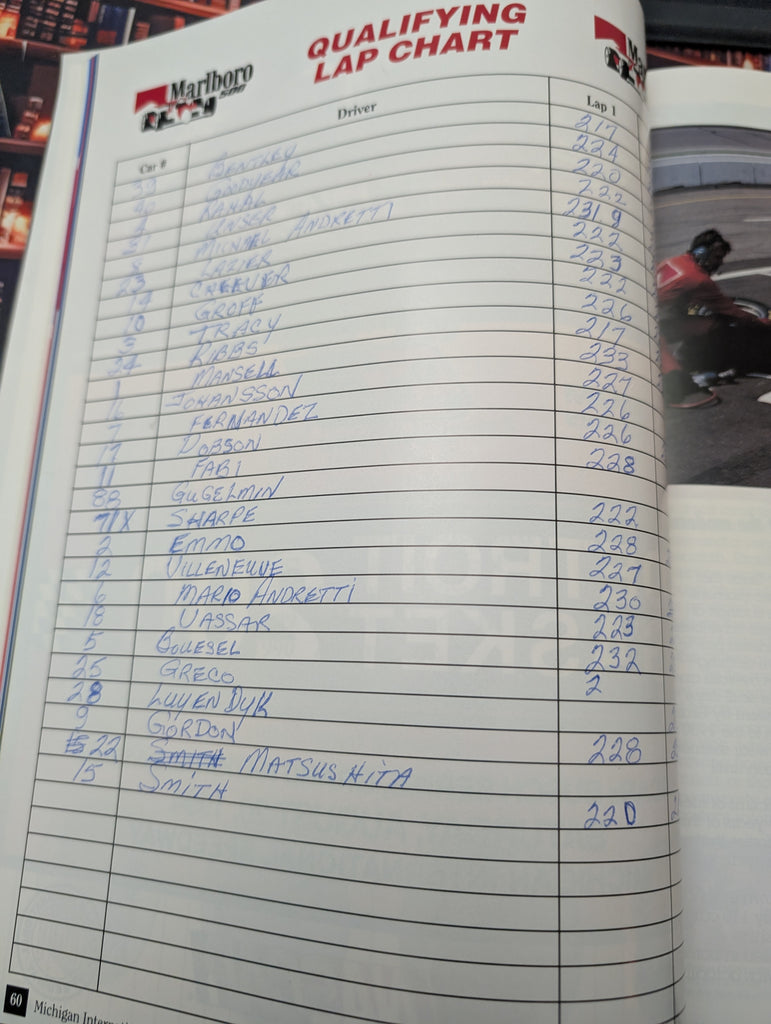 QUALIFYING
LAP CHART
Marlboro
500
Car # Driver Lap 1
39 BENTLEY 217
40 GOODYEAR 224
4 RAHAL 220
31 UNSER 222
8 MICHAEL ANDRETTI 231.9
23 LAZIER 222
14 CHEEVER 223
10 GROFF 222
3 TRACY 226
24 RIBBS 217
1 MANSELL 233
16 JOHANSSON 227
7 FERNANDEZ 226
17 DOBSON 226
11 FABI 228
88 GUGELMIN
71X SHARPE 222
2 EMMO 228
12 VILLENEUVE 227
6 MARIO ANDRETTI 230
18 VASSAR 223
5 BOUESEL 232
25 GRECO 2
28 LUYENDYK
9 GORDON 228
22 SMITH MATSUSHITA
15 SMITH 220
60 Michigan